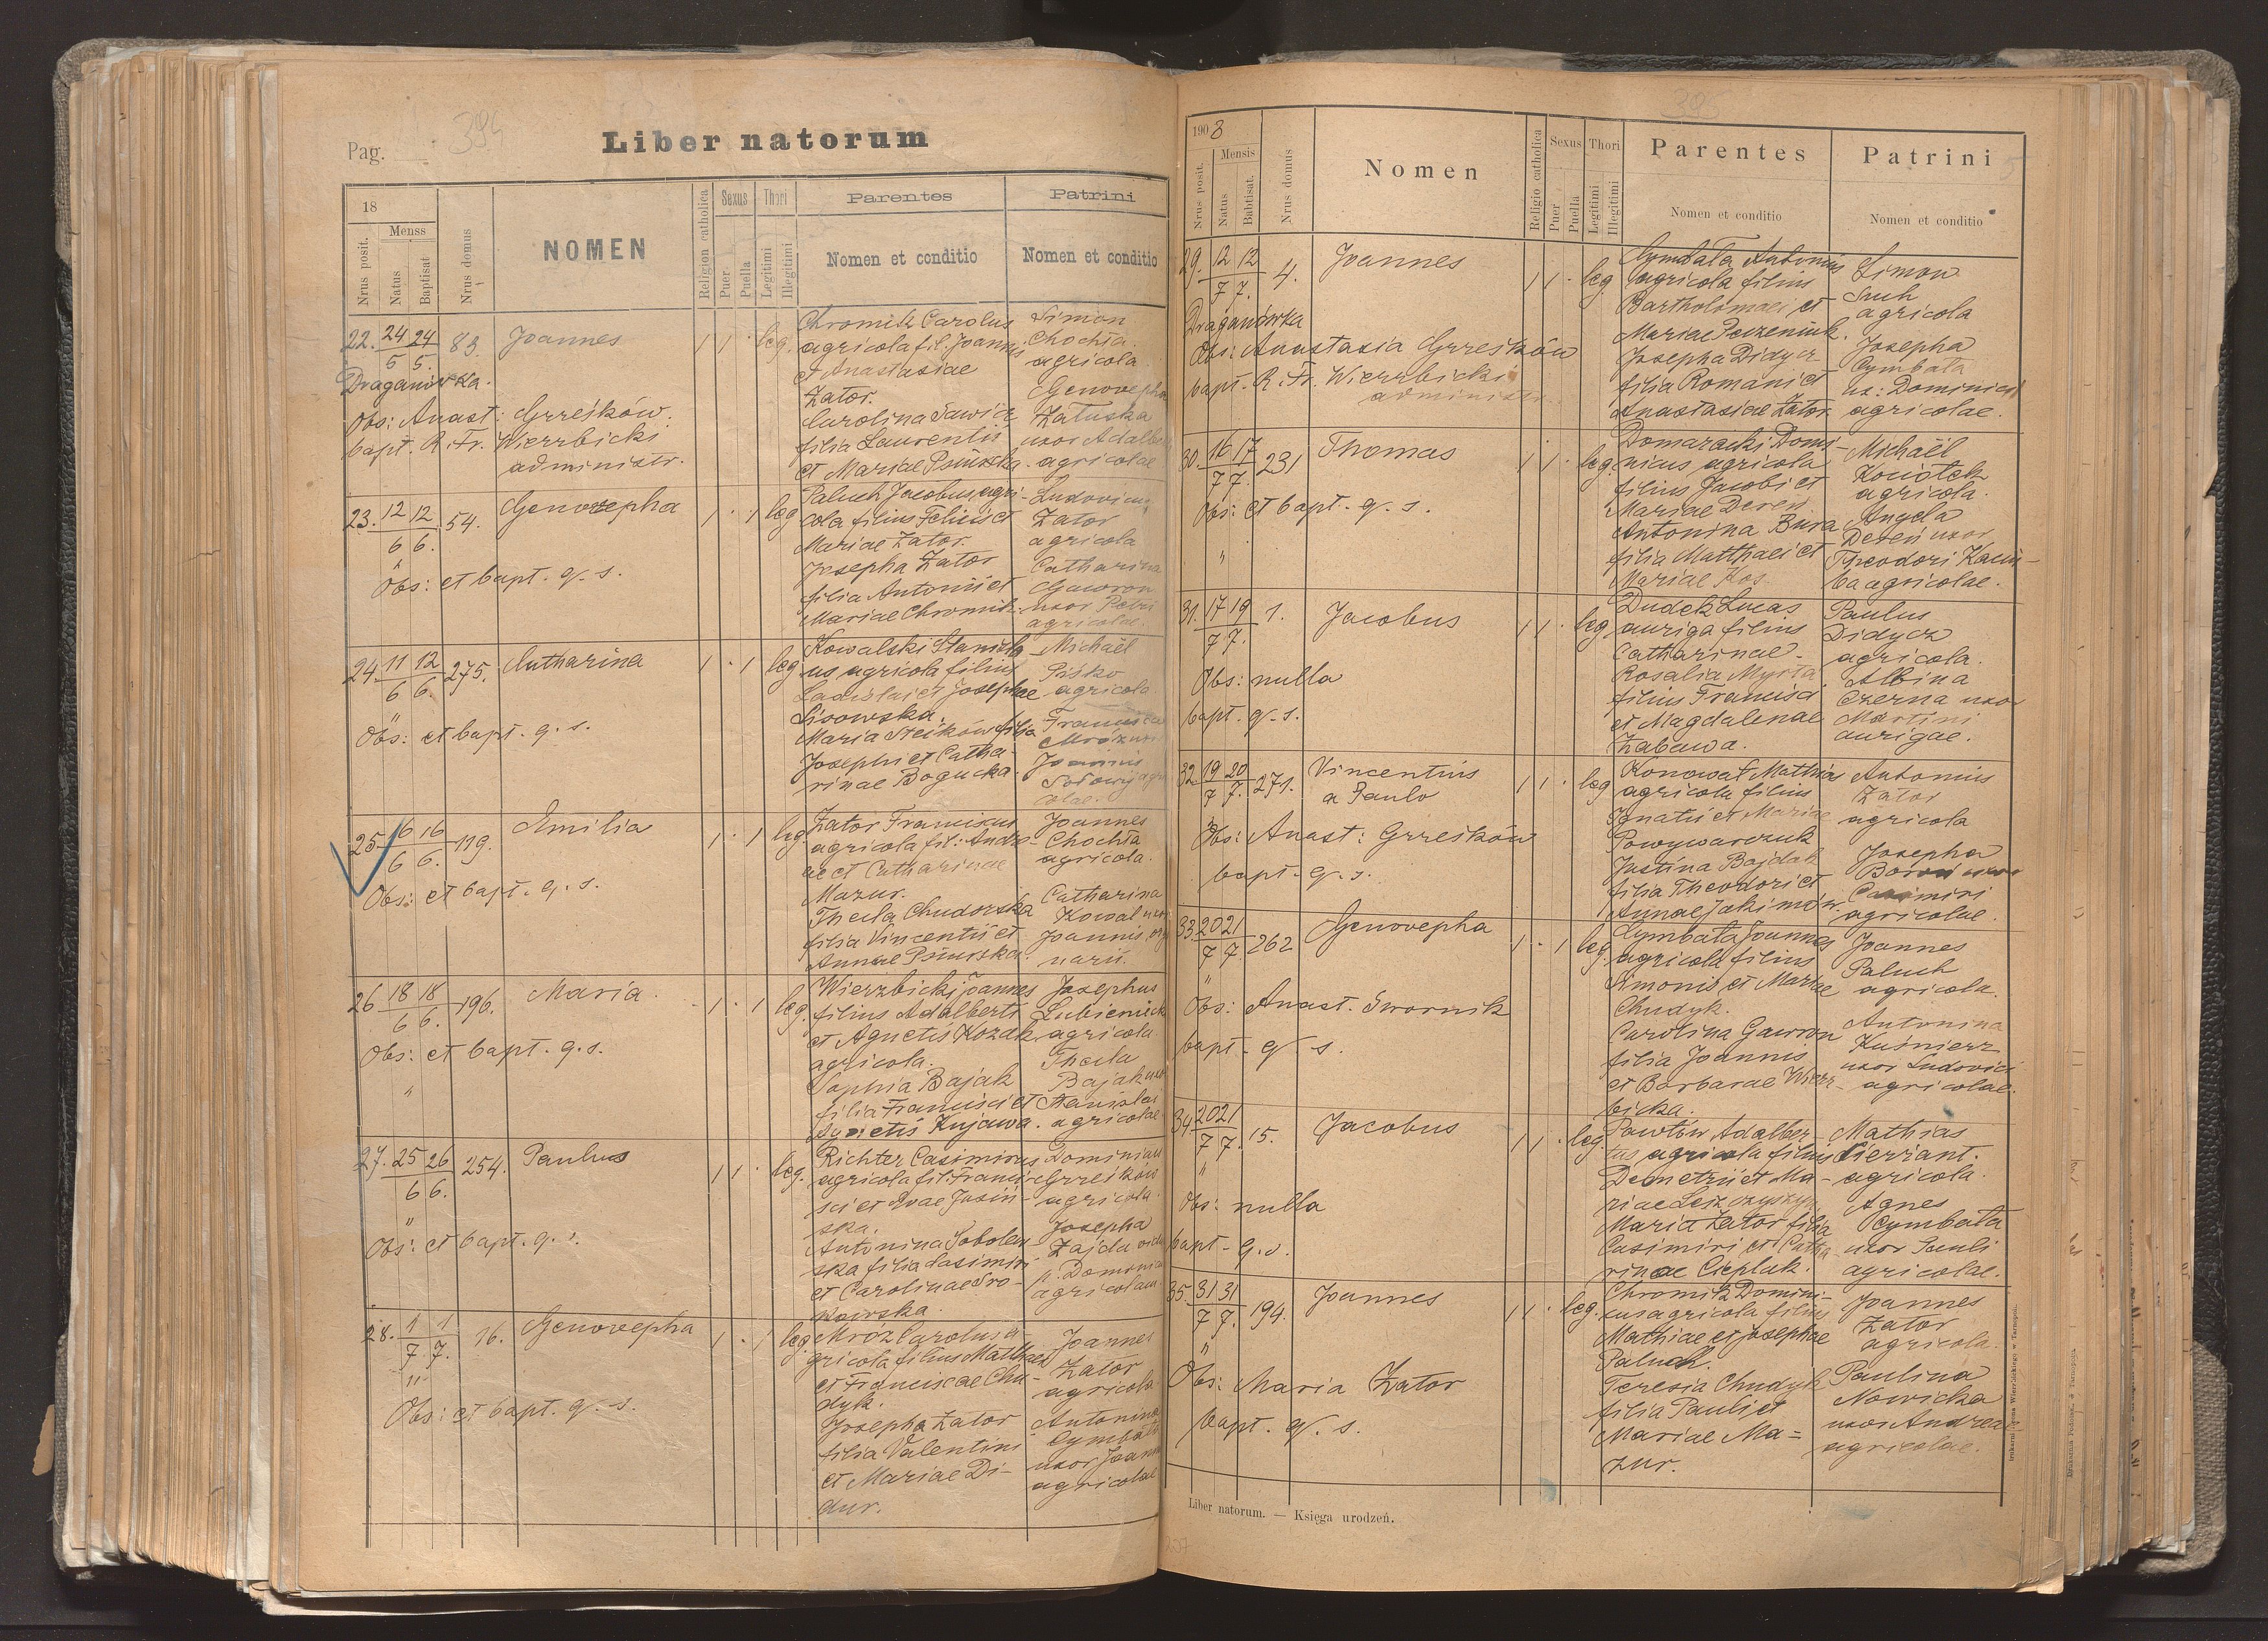 Pag. 394
Liber natorum
18
Nrus posit.
Menss
Natus
Baptisat
Nrus domus
NOMEN
Religion catholica
Sexus
Puer
Puella
Thori
Legitimi
Illegitimi
Parentes
Nomen et conditio
Patrini
Nomen et conditio
22. 24/5 24/5. 83. Joannes 1 1 · leg.
Draganówka.
Obs: Anast: Grześków.
bapt. R. Fr. Wierzbicki
administr.
Chromik Carolus
agricola fil. Joannis
et Anastasiae
Zator.
Carolina Sawicz
filia Laurentii
et Mariae Psiurska.
Simon
Chochła
agricola
Genovepha
Załuska
uxor Adalb
agricolae
23. 12/6 12/6. 54. Genovepha 1 · 1 leg
Obs: et bapt. q. s.
Paluch Jacobus agri-
cola filius Felicis et
Mariae Zator.
Josepha Zator
filia Antonii et
Mariae Chromik.
Ludovicus
Zator
agricola
Catharina
Gawron
uxor Petri
agricolae.
24. 11/6 12/6. 275. Catharina 1 · 1 leg
Obs: et bapt. q. s.
Kowalski Stanisla-
us agricola filius
Ladislai et Josephae
Lisowska.
Maria Steików filia
Josephi et Catha-
rinae Bogucka.
Michaël
Piśko
agricola
Francisca
Mróz uxor
Joannis
Sołowij agri
colae.
25. 16/6 16/6. 119. Emilia 1 · 1 leg.
Obs: et bapt. q. s.
Zator Franciscus
agricola fil: Andre-
ae et Catharinae
Mazur.
Thecla Chudorska
filia Vincentii et
Annae Psiurska.
Joannes
Chochła
agricola.
Catharina
Kowal uxor
Joannis
narii.
26. 18/6 18/6. 196. Maria. 1 · 1 leg.
Obs: et bapt. q. s.
"
Wierzbicki Joannes
filius Adalberti
et Agnetis Kozak
agricola.
Sophia Bajak
filia Francisci et
Agnetis Kujawa.
Josephus
Lubieniecki
agricola
Thecla
Bajak uxor
Stanislai
agricolae
27. 25/6 26/6. 254. Paulus 1 1 · leg.
"
Obs: et bapt. q. s.
Richter Casimirus
agricola fil: Franci-
sci et Evae Jasiń-
ska.
Antonina Sobolew-
ska filia Casimiri
et Carolinae Sro-
kowska.
Dominicus
Grześków
agricola.
Josepha
Zajda vidua
p. Dominicum
agricolam.
28. 1/7 1/7. 16. Genovepha 1 · 1 leg.
"
Obs: et bapt. q. s.
Mróz Carolus a-
gricola filius Matthaei
et Franciscae Chu-
dyk.
Josepha Zator
filia Valentini
et Mariae Di-
dur.
Joannes
Zator
agricola
Antonina
Cymbała
uxor Joannis
agricolae
395
1903
Nrus posit.
Mensis
Natus
Babtisat.
Nrus domus
Nomen
Religio catholica
Sexus
Puer
Puella
Thori
Legitimi
Illegitimi
Parentes
Nomen et conditio
Patrini
Nomen et conditio
29. 12/7 12/7. 4. Joannes 1 1 · leg.
Draganówka
Obs: Anastasia Grześków
bapt. R. Fr. Wierzbicki
administr.
Cymbała Antonius
agricola filius
Bartholomaei et
Mariae Peczeniuk.
Josepha Didycz
filia Romani et
Anastasiae Zator
Simon
Such
agricola
Josepha
Cymbała
ux: Dominici
agricolae.
30. 16/7 17/7. 231 Thomas 1 1 · leg.
Obs: et bapt. q. s.
"
Domaracki Domi-
nicus agricola
filius Jacobi et
Mariae Dereń
Antonina Bura
filia Matthaei et
Mariae Kos
Michaël
Kociołek
agricola.
Angela
Dereń uxor
Theodori
ba agricolae.
31. 17/7 19/7. 1. Jacobus 1 1 · leg
Obs: nulla
bapt. q. s.
Dudek Lucas
auriga filius
Catharinae.
Rosalia Myrta
filius Francisci
et Magdalenae
Zabawa.
Paulus
Didycz
agricola.
Albina
Czerna uxor
Martini
aurigae.
32. 19/7 20/7. 271. Vincentius 1 1 · leg
a Paulo
Obs: Anast: Grześków
bapt. q. s.
Konował Mathias
agricola filius
Ignatii et Mariae
Powywarczuk
Justina Bajdak
filia Theodori et
Annae Jakimów.
Antonius
Zator
agricola
Josepha
Boroń uxor
Casimiri
agricolae.
33. 20/7 21/7. 262 Genovepha 1 · 1 leg.
"
Obs: Anast. Swornik
bapt. q. s.
Cymbała Joannes
agricola filius
Simonis et Mariae
Chudyk.
Carolina Gawron
filia Joannis
et Barbarae Wierz-
bicka.
Joannes
Paluch
agricola.
Antonina
Kuśnierz
uxor Ludovici
agricolae.
34. 20/7 21/7. 15. Jacobus 1 1 · leg
"
Obs: nulla
bapt. q. s.
Pawłów Adalber-
tus agricola filius
Demetrii et Ma-
riae
Maria Zator filia
Casimiri et Catha-
rinae Ciepluk.
Mathias
Cierzant.
agricola.
Agnes
Cymbała
uxor Pauli
agricolae.
35. 31/7 31/7. 194. Joannes 1 1 · leg.
"
Obs: Maria Zator
bapt. q. s.
Chromik Domini-
cus agricola filius
Mathiae et Josephae
Paluch.
Teresia Chudyk
filia Pauli et
Mariae Ma=
zur.
Joannes
Zator
agricola.
Paulina
Nowicka
uxor Andreae
agricolae.
Liber natorum. — Księga urodzeń.